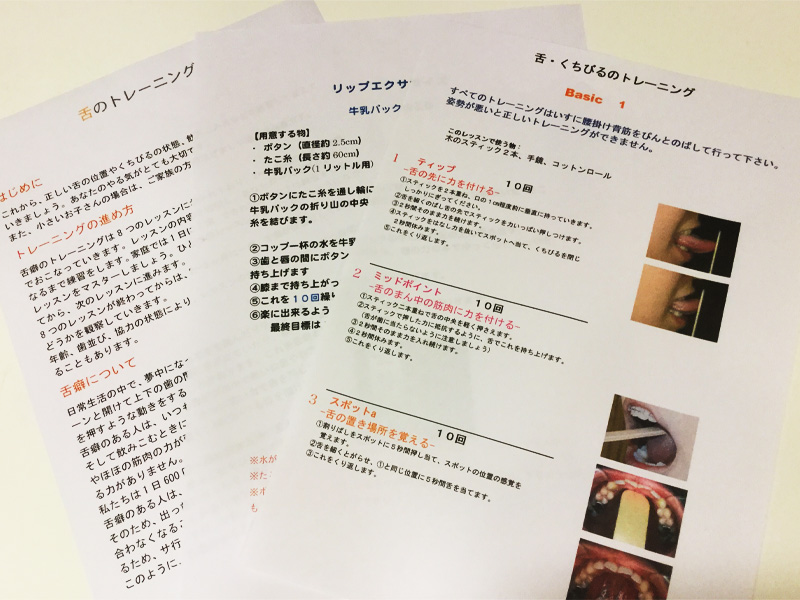 舌のトレーニング
はじめに
これから、正しい舌の位置やくちびるの状態、飲
いきましょう。あなたのやる気がとても大切で
また、小さいお子さんの場合は、ご家族の方
トレーニングの進め方
舌癖のトレーニングは8つのレッスンに
でおこなっていきます。レッスンの内容
なるまで練習をします。家庭では1日
レッスンをマスターしましょう。ひと
てから、次のレッスンに進みます。
8つのレッスンが終わってからは、
どうかを観察していきます。
年齢、歯並び、協力の状態により
ることもあります。
舌癖について
日常生活の中で、夢中になっ
ーンと開けて上下の歯の間
を押すような動きをする
舌癖のある人は、いつも
そして飲みこむときに
やほほの筋肉の力が
る力がありません。
私たちは1日600
舌癖のある人は、
そのため、出っ
合わなくなる
るため、サ行
このように、
リップエクサ
牛乳パック
【用意する物】
・ ボタン（直径約2.5cm）
・ たこ糸（長さ約60cm）
・ 牛乳パック(1リットル用)
①ボタンにたこ糸を通し輪に
牛乳パックの折り山の中央
糸を結びます。
②コップ一杯の水を牛乳
③歯と唇の間にボタン
持ち上げます
④膝まで持ち上がっ
⑤これを10回繰り
⑥楽に出来るよう
最終目標は
※水が
※た
※ボ
も
舌・くちびるのトレーニング
Basic 1
すべてのトレーニングはいすに腰掛け背筋をぴんとのばして行って下さい。
姿勢が悪いと正しいトレーニングができません。
このレッスンで使う物：
木のスティック2本、手鏡、コットンロール
1 ティップ 10回
-舌の先に力を付ける-
①スティックを2本重ね、口の1cm程度前に垂直に持っていきます。
しっかりにぎってください。
②舌を細くのばし舌の先でスティックを力いっぱい押しつけます。
③2秒間そのまま力を続けます。
④スティックをはなし力を抜いてスポットへ当て、くちびるを閉じ
2秒間休みます。
⑤これをくり返します。
2 ミッドポイント 10回
-舌のまん中の筋肉に力を付ける-
①スティック二本重ねで舌の中央を軽く押さえます。
②スティックで押した力に抵抗するように、舌でこれを持ち上げます。
(舌が歯に当たらないように注意しましょう)
③2秒間そのまま力を入れ続けます。
④2秒間休みます。
⑤これをくり返します。
3 スポットa 10回
-舌の置き場所を覚える-
①割りばしをスポットに5秒間押し当て、スポットの位置の感覚を
覚えます。
②舌を細くとがらせ、①と同じ位置に5秒間舌を当てます。
③これをくり返します。